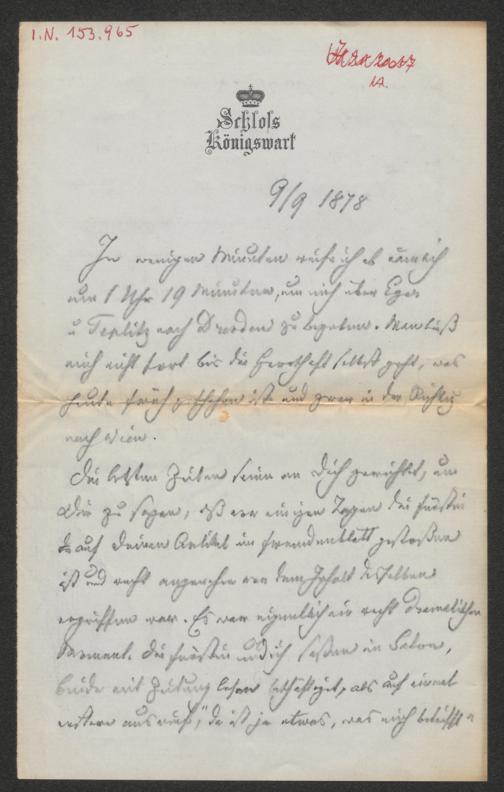 I.N. 153.965
Schloss
Königswart
9/9 1878
In wenigen Minuten reise ich ab nämlich
um 1 Uhr 19 Minuten, um mich über Eger
u Teplitz nach Dresden zu begeben. Man ließ
mich nicht fort bis die Herrschaft selbst geht, was
heute früh geschehen ist und zwar in der Richtung
nach Wien.
Die letzten Zeilen seien an Dich gerichtet, um
Dir zu sagen, daß vor einigen Tagen die Fürstin
auf Deinen Artikel im Fremdenblatt gestoßen
ist und recht angenehm von dem Inhalt desselben
ergriffen war. Es war eigentlich ein recht dramatischer
Moment. Die Fürstin und ich saßen im Salon,
beide mit Zeitung lesen beschäftigt, als auf einmal
erstere ausrief: „da ist ja etwas, was mich betrifft"